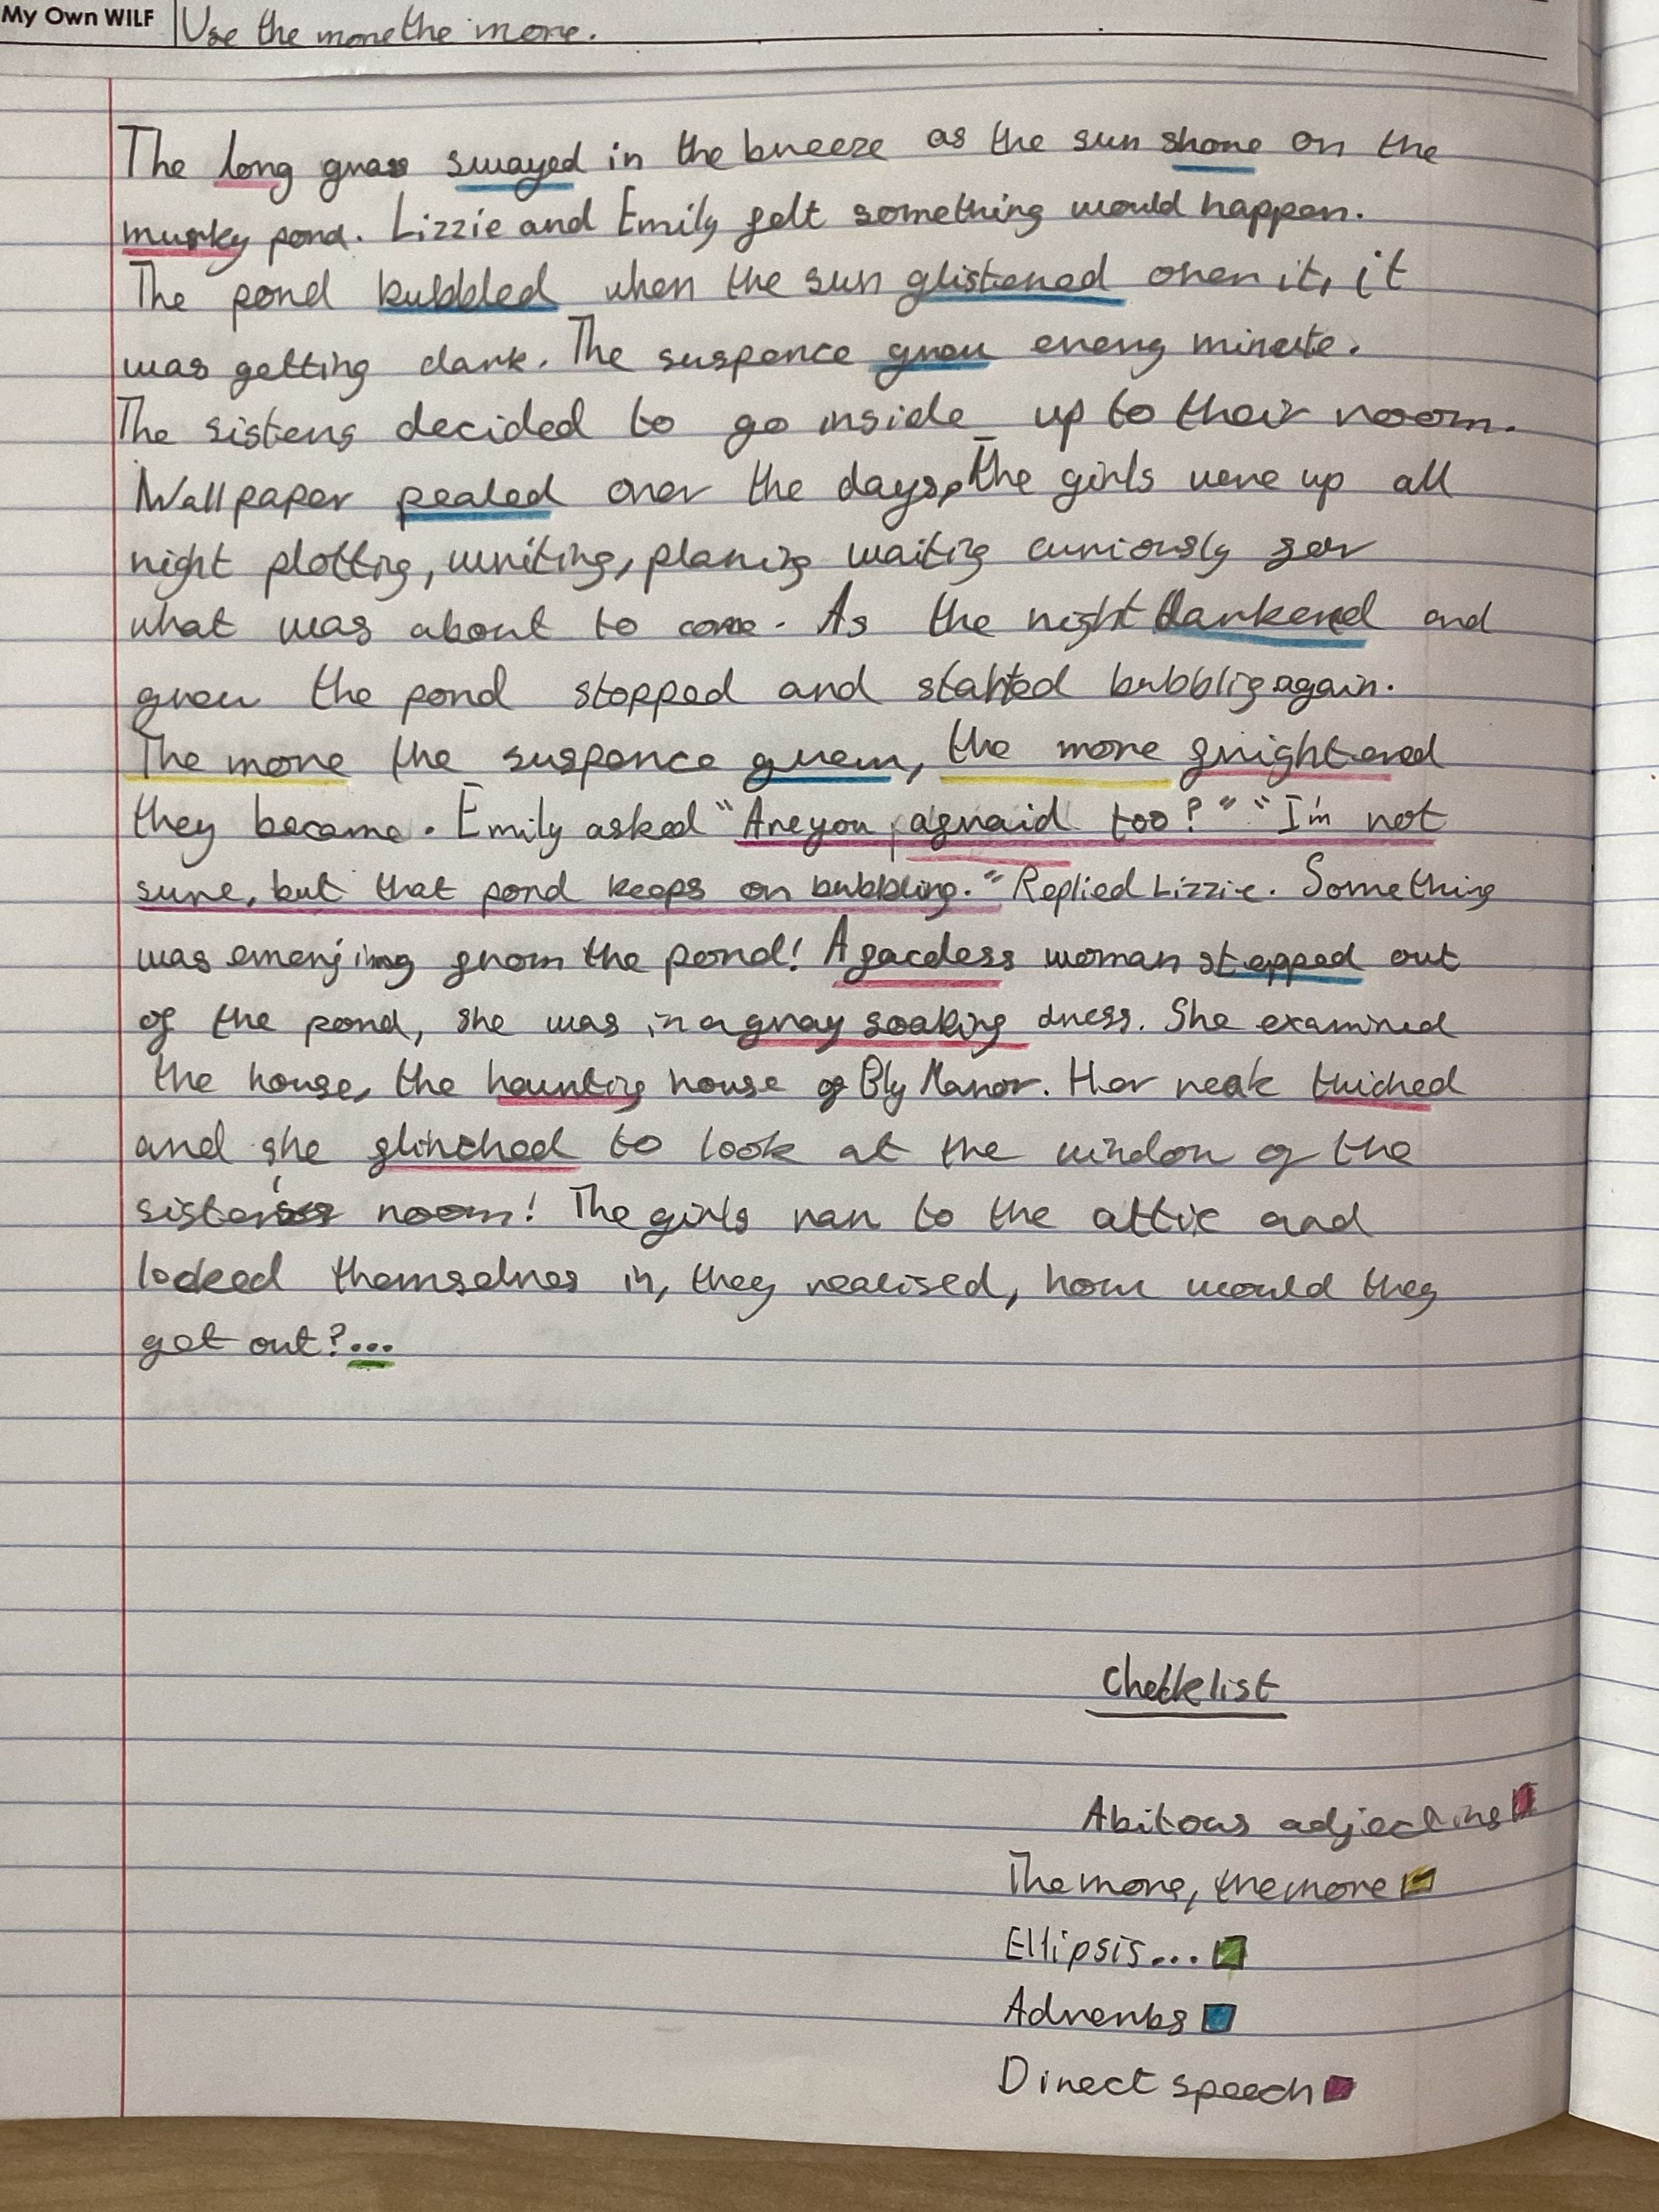 My Own WILF
Use the more the more.
The long grass swayed in the breeze as the sun shone on the
murky pond. Lizzie and Emily felt something would happen.
The pond bubbled when the sun glistened over it, it
was getting dark. The suspence grew every minute.
The sisters decided to go inside up to their room.
Wallpaper pealed over the days, The girls were up all
night plotting, writing, planing waiting curiously for
what was about to come. As the night darkened and
grew the pond stopped and started bubblig again.
The more the suspence grew, the more frightened
they became. Emily asked "Are you afraid too?" "I'm not
sure, but that pond keeps on bubbling." Replied Lizzie. Something
was emerjing from the pond! A faceless woman stepped out
of the pond, she was in a gray soaking dress. She examined
the house, the haunting house of Bly Manor. Her neak twiched
and she flinched to look at the window of the
sister's room! The girls ran to the attic and
locked themselves in, they realised, how would they
get out?...
Checklist
Abitous adjectives
The more, the more
Ellipsis...
Adverbs
Direct speech